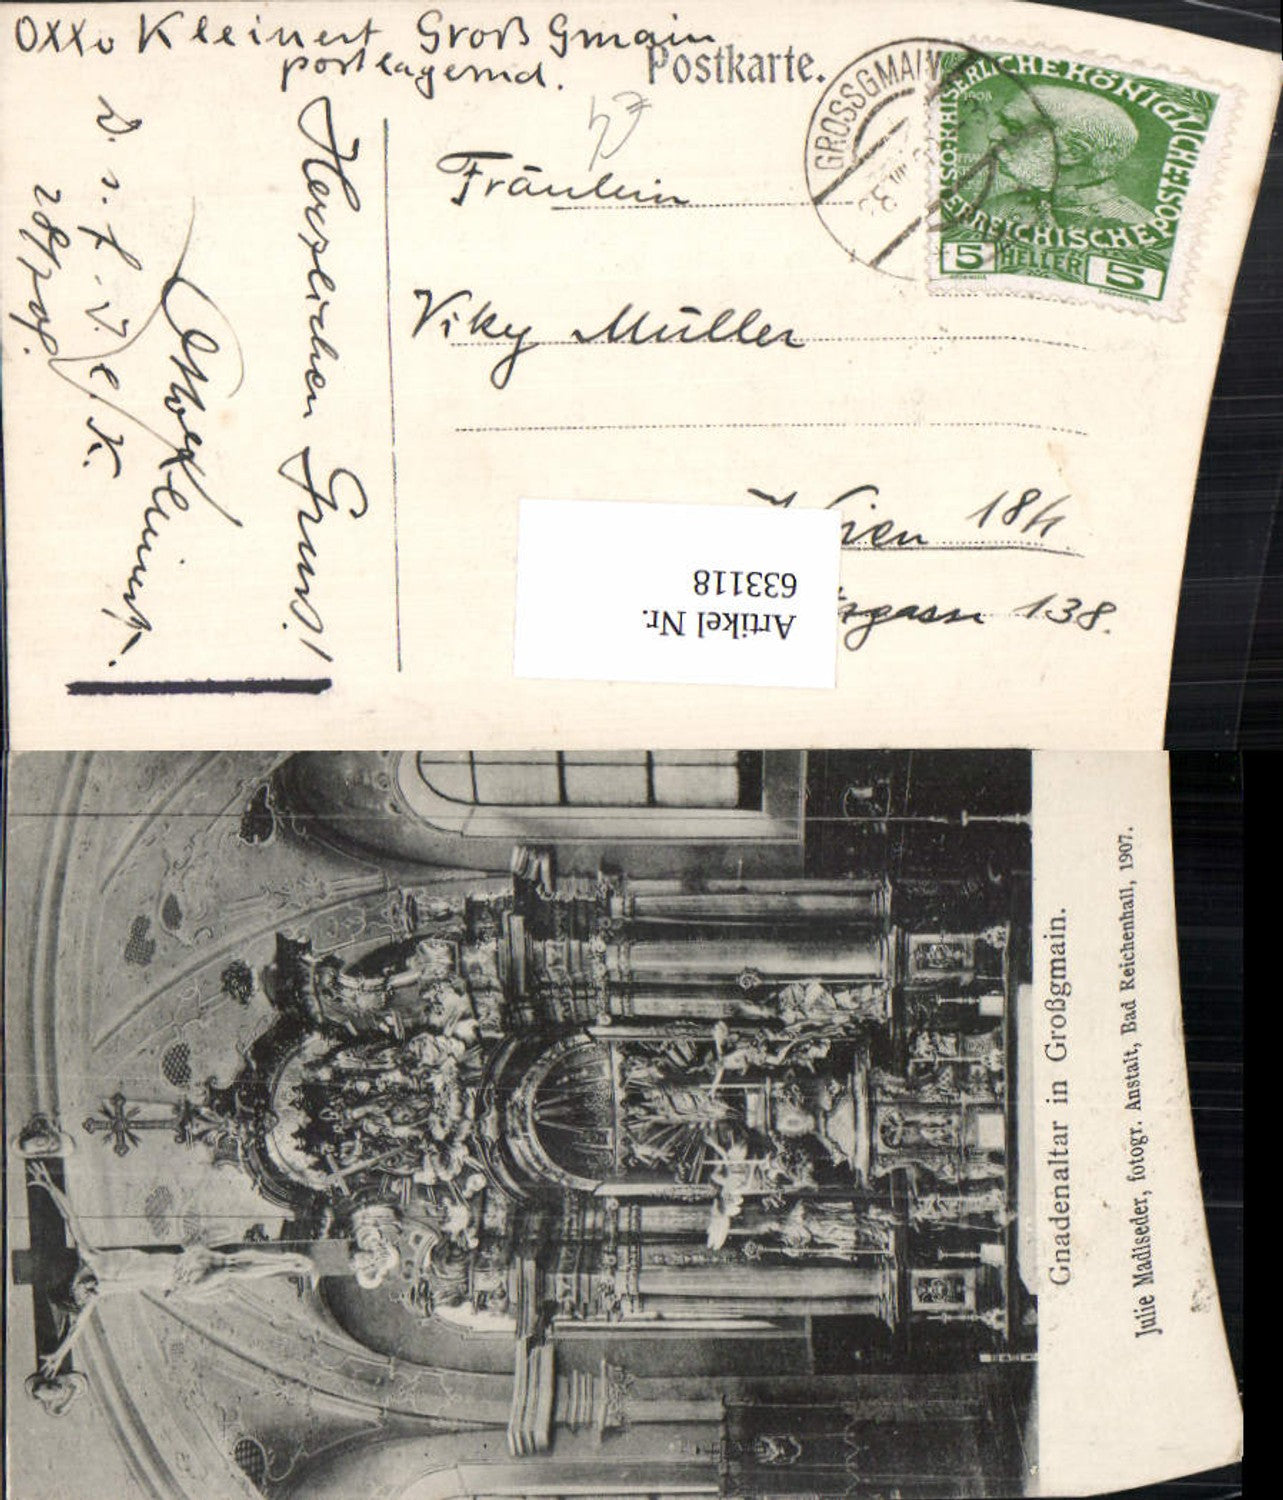 Otto Kleinert Groß Gmain
postlagernd.
Postkarte.
GROSSGMAIN
KAISERLICHE KÖNIGLICHE
ÖSTERREICHISCHE POST
1908
5 HELLER 5
Fräulein
Viky Müller
Wien 18/1
gasse 138.
Artikel Nr.
633118
Herzlichen Gruß!
Otto Kleinert.
D. s. f. V. e. K.
Gnadenaltar in Großgmain.
Julie Madlseder, fotogr. Anstalt, Bad Reichenhall, 1907.